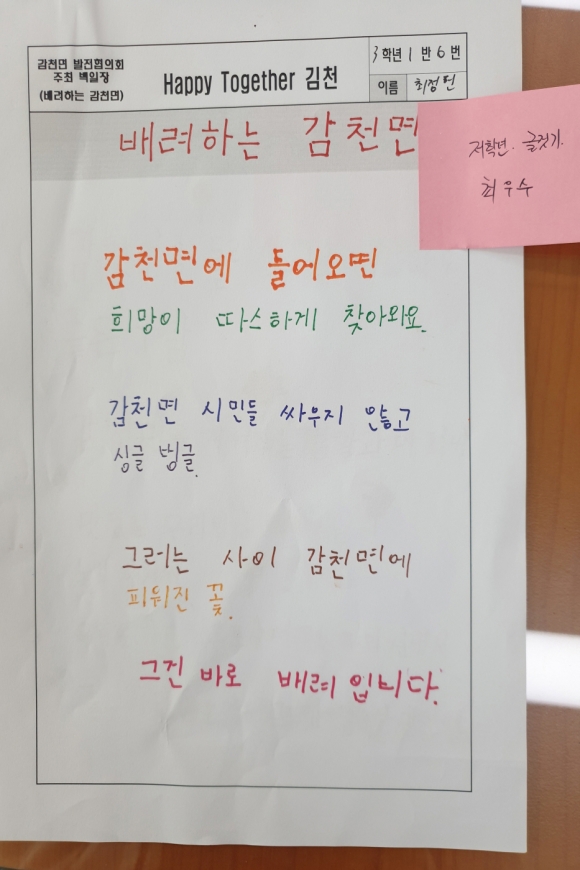 감천면 발전협의회
주최 백일장
(배려하는 감천면)
Happy Together 김천
3학년 1반 6번
이름 최정민
저학년. 글짓기.
최우수
배려하는 감천면
감천면에 들어오면
희망이 따스하게 찾아와요.
감천면 시민들 싸우지 안㶅고
싱글 벙글.
그러는 사이 감천면에
피워진 꽃.
그건 바로 배려입니다.